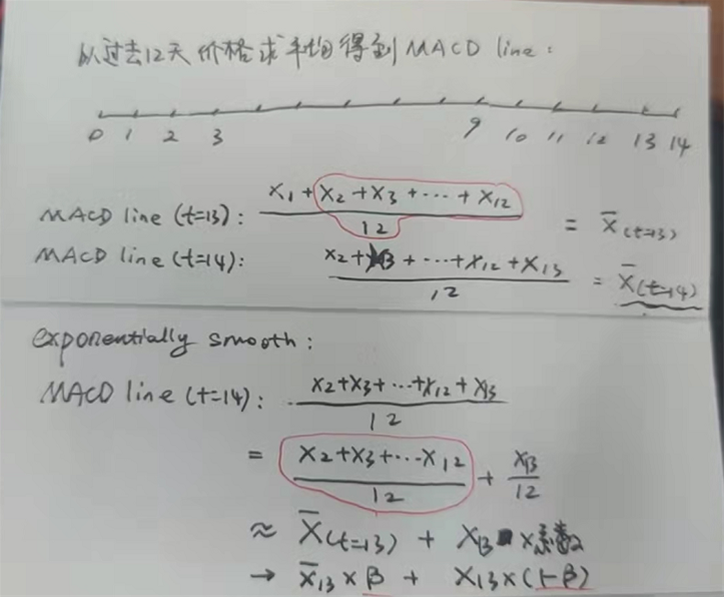 从过去12天价格求平均得到MACD line:
0 1 2 3 9 10 11 12 13 14
MACD line (t=13): (x₁ + x₂ + x₃ + ... + x₁₂) / 12 = x̄(t=13)
MACD line (t=14): (x₂ + x₃ + ... + x₁₂ + x₁₃) / 12 = x̄(t=14)
exponentially smooth:
MACD line (t=14): (x₂+x₃+...+x₁₂+x₁₃) / 12
= (x₂+x₃+...x₁₂) / 12 + x₁₃ / 12
≈ x̄(t=13) + x₁₃ × 系数
→ x̄₁₃ × β + x₁₃ × (1-β)